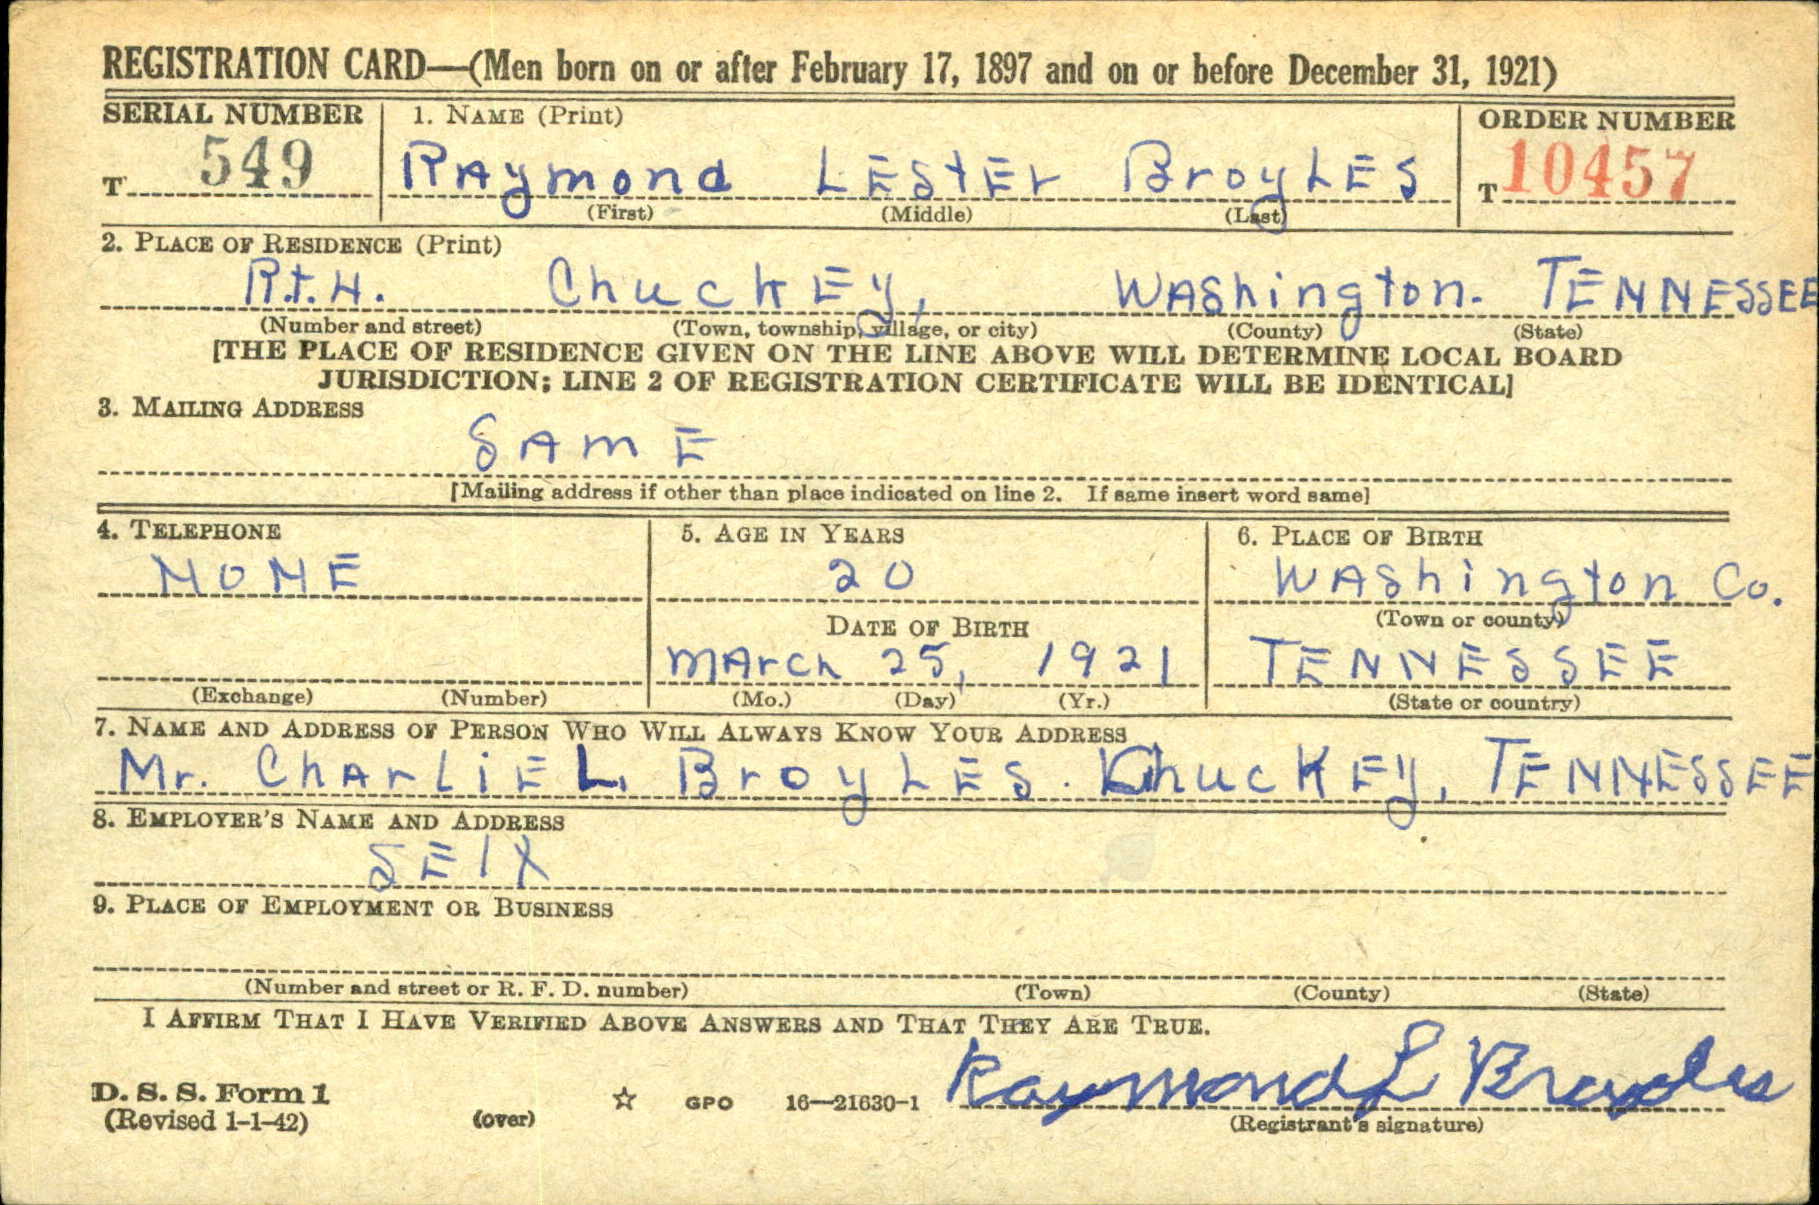 REGISTRATION CARD—(Men born on or after February 17, 1897 and on or before December 31, 1921)
SERIAL NUMBER 1. NAME (Print) ORDER NUMBER
T 549 RAymond LESTEr BroyLES T 10457
(First) (Middle) (Last)
2. PLACE OF RESIDENCE (Print)
R.t. 4. ChuckEy, WAShington. TENNESSEE
(Number and street) (Town, township, village, or city) (County) (State)
[THE PLACE OF RESIDENCE GIVEN ON THE LINE ABOVE WILL DETERMINE LOCAL BOARD
JURISDICTION; LINE 2 OF REGISTRATION CERTIFICATE WILL BE IDENTICAL]
3. MAILING ADDRESS
SAME
[Mailing address if other than place indicated on line 2. If same insert word same]
4. TELEPHONE 5. AGE IN YEARS 6. PLACE OF BIRTH
NONE 20 WAShington Co.
DATE OF BIRTH (Town or county)
mArch 25, 1921 TENNESSEE
(Exchange) (Number) (Mo.) (Day) (Yr.) (State or country)
7. NAME AND ADDRESS OF PERSON WHO WILL ALWAYS KNOW YOUR ADDRESS
Mr. ChArLiE L. BroyLES. ChucKEy, TENNESSEE
8. EMPLOYER'S NAME AND ADDRESS
SElf
9. PLACE OF EMPLOYMENT OR BUSINESS
(Number and street or R. F. D. number) (Town) (County) (State)
I AFFIRM THAT I HAVE VERIFIED ABOVE ANSWERS AND THAT THEY ARE TRUE.
D. S. S. Form 1
(Revised 1-1-42) (over) ☆ GPO 16—21630-1 Raymond L Broyles
(Registrant's signature)